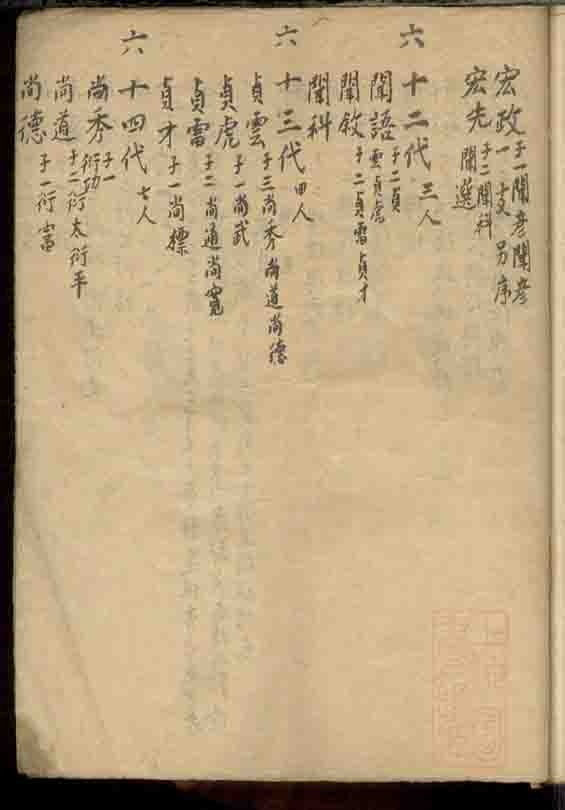 宏政 子一聞彦聞彦一支另序
宏先 子二聞科聞選
六十二代 三人
聞語 子二貞雲貞虎
聞敘 子二貞雷貞才
聞科
六十三代 四人
貞雲 子三尚秀尚道尚德
貞虎 子一尚武
貞雷 子二尚通尚寬
貞才 子一尚標
六十四代 七人
尚秀 子一衍功
尚道 子二衍太衍平
尚德 子一衍富